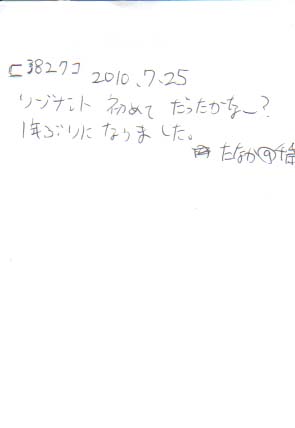 [3827] 2010.7.25
リゾナント 初めて だったかなー?
1年ぶりに なりました。
たなか